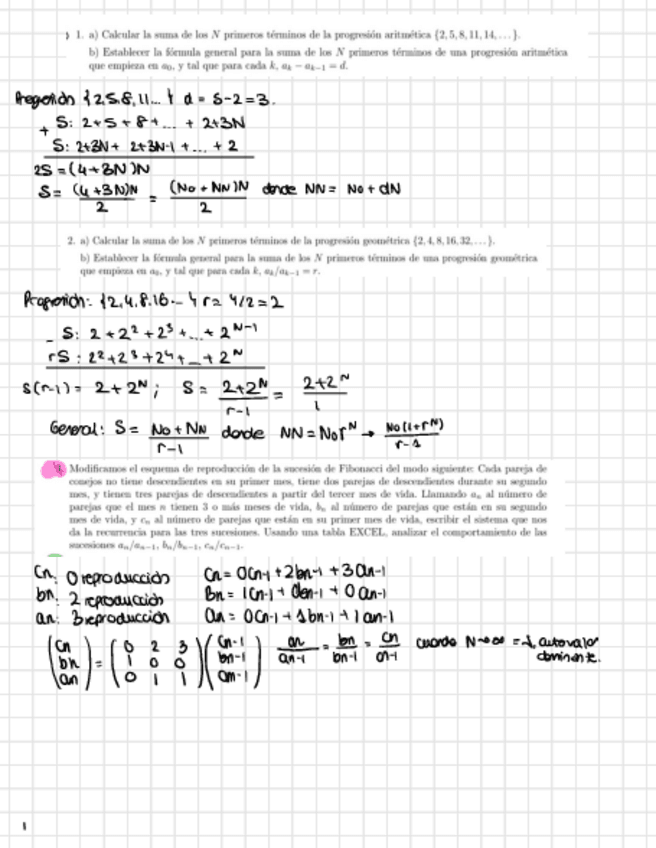 1. a) Calcular la suma de los N primeros términos de la progresión aritmética {2, 5, 8, 11, 14, . . . }.
b) Establecer la fórmula general para la suma de los N primeros términos de una progresión aritmética
que empieza en a₀, y tal que para cada k, aₖ − aₖ₋₁ = d.
{2,5,8,11... } d = 5-2=3.
+ S: 2+5+8+... + 2+3N
S: 2+3N+ 2+3N-1+... +2
2S =(4+3N)N
S= (4+3N)N / 2 = (No + NN)N / 2 donde NN = No + dN
2. a) Calcular la suma de los N primeros términos de la progresión geométrica {2, 4, 8, 16, 32, . . . }.
b) Establecer la fórmula general para la suma de los N primeros términos de una progresión geométrica
que empieza en a₀, y tal que para cada k, aₖ/aₖ₋₁ = r.
{2,4,8,16... } r= 4/2=2
- S: 2+2²+2³+...+2^N-1
rS: 2²+2³+2⁴+...+2^N
S(r-1)= 2+2^N ; S= 2+2^N / r-1 = 2+2^N / 1
General: S= No+NN / r-1 donde NN=Nor^N → No(1+r^N) / r-1
Modificamos el esquema de reproducción de la sucesión de Fibonacci del modo siguiente: Cada pareja de
conejos no tiene descendientes en su primer mes, tiene dos parejas de descendientes durante su segundo
mes, y tienen tres parejas de descendientes a partir del tercer mes de vida. Llamando aₙ al número de
parejas que el mes n tienen 3 o más meses de vida, bₙ al número de parejas que están en su segundo
mes de vida, y cₙ al número de parejas que están en su primer mes de vida, escribir el sistema que nos
da la recurrencia para las tres sucesiones. Usando una tabla EXCEL, analizar el comportamiento de las
sucesiones aₙ/aₙ₋₁, bₙ/bₙ₋₁, cₙ/cₙ₋₁.
Cn: 0 reproducción Cn= 0Cn-1+2bn-1+3an-1
bn: 2 reproducción Bn= 1Cn-1+0bn-1+0an-1
an: 3 reproducción an= 0Cn-1+1bn-1+1an-1
(Cn bn an) = (0 2 3 1 0 0 0 1 1) (Cn-1 bn-1 an-1) an/an-1 = bn/bn-1 = cn/cn-1 cuando N→∞ = λ, autovalor
dominante.
1